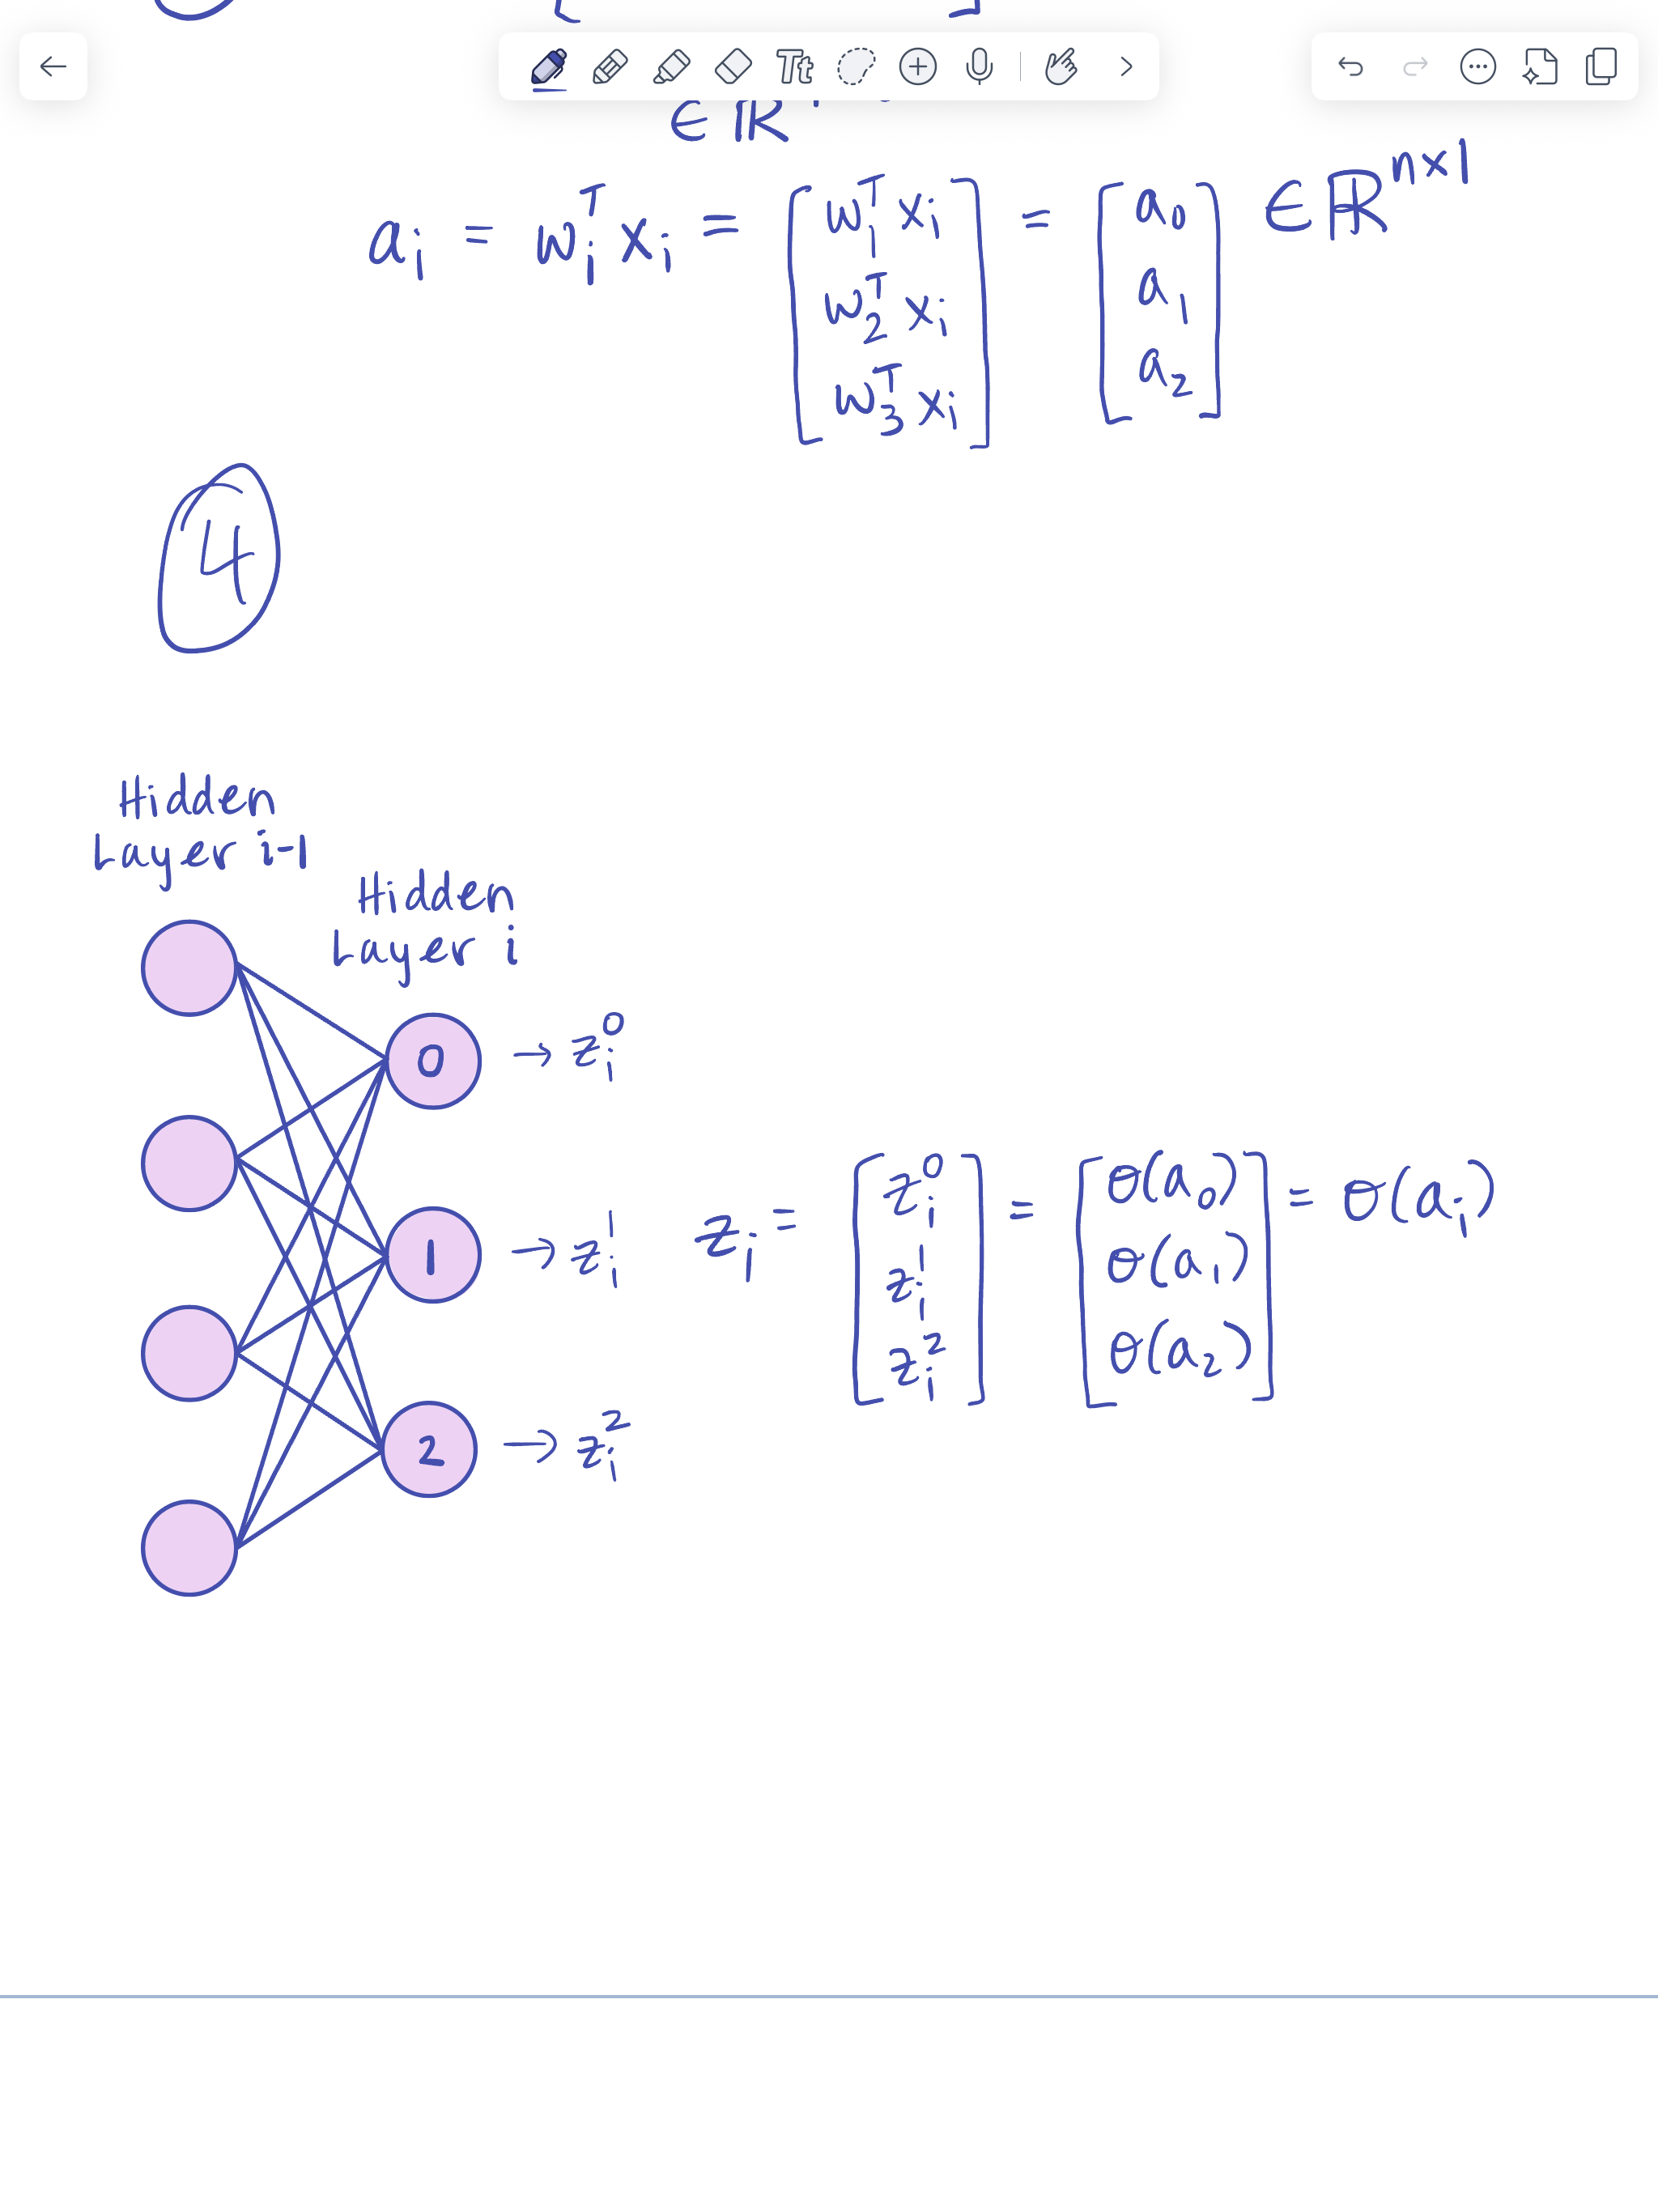 ∈ ℝ
aᵢ = wᵢᵀ xᵢ = [w₁ᵀ xᵢ w₂ᵀ xᵢ w₃ᵀ xᵢ] = [a₀ a₁ a₂] ∈ ℝⁿˣ¹
4
Hidden
Layer i-1
Hidden
Layer i
0 → zᵢ⁰
1 → zᵢ¹
2 → zᵢ²
zᵢ = [zᵢ⁰ zᵢ¹ zᵢ²] = [σ(a₀) σ(a₁) σ(a₂)] = σ(aᵢ)
Tt